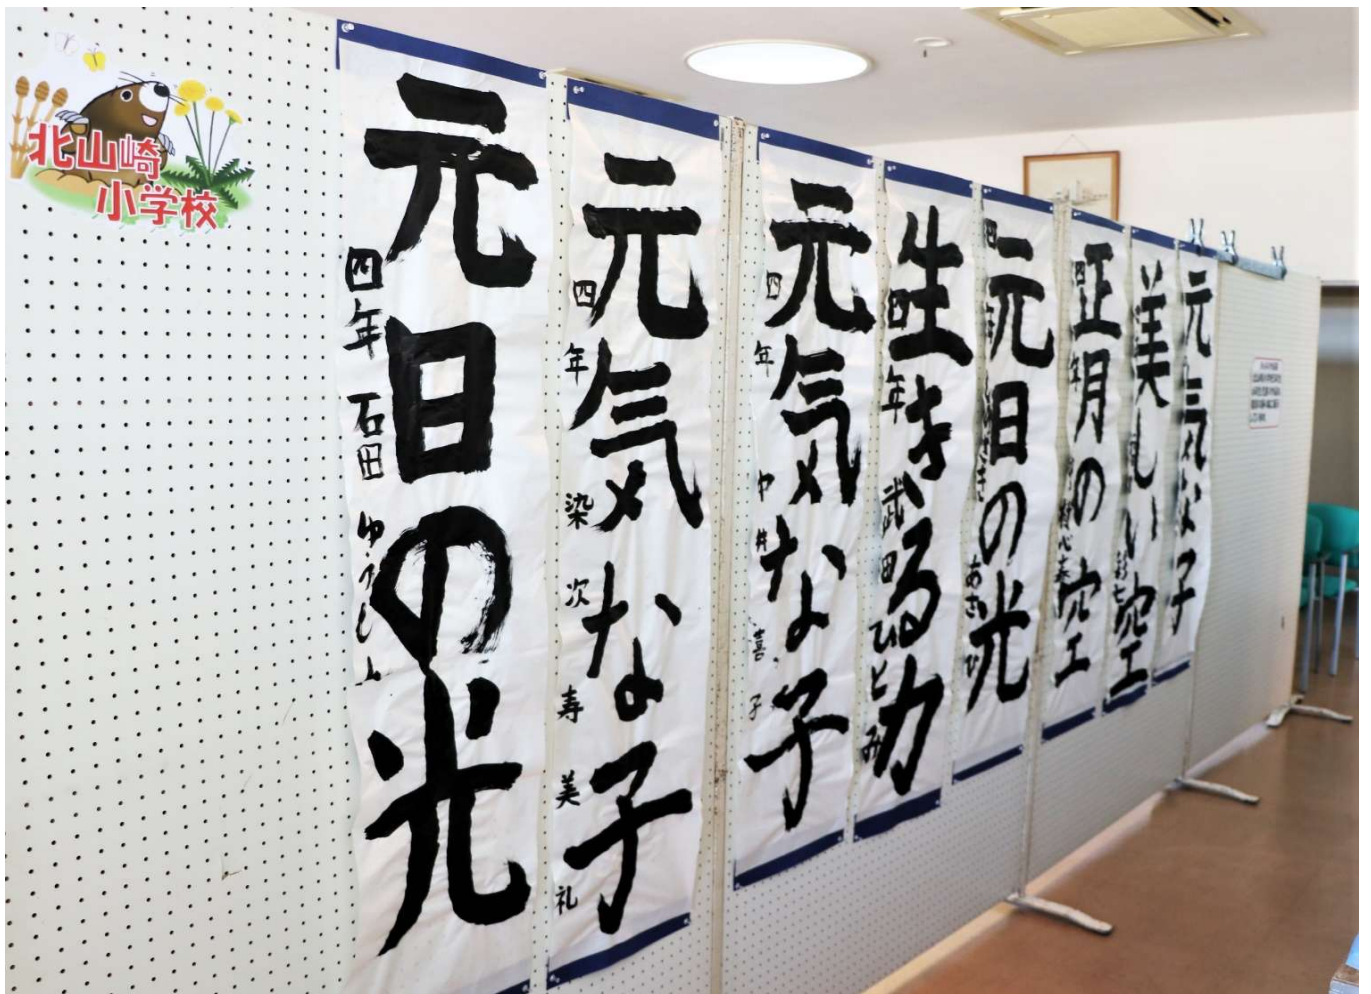 北山崎
小学校
元日の光
四年 石田
元気な子
四年 染次 寿美礼
元気な子
四年 中井 喜子
生きる力
四年 武田 ひとみ
元日の光
四年 あさひ
正月の空
四年
美しい空
元気な子